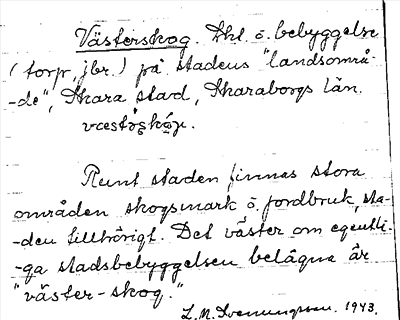 Västerskog. Skt. o. bebyggelse
(torp, jbr.) på stadens "landsområ-
-de", Skara stad, Skaraborgs län.
Runt staden finnas stora
områden skogsmark o. jordbruk, sta-
-den tillhörigt. Det väster om egentli-
-ga stadsbebyggelsen belägna är
"väster-skog."
L. M. Svenungsson. 1943.